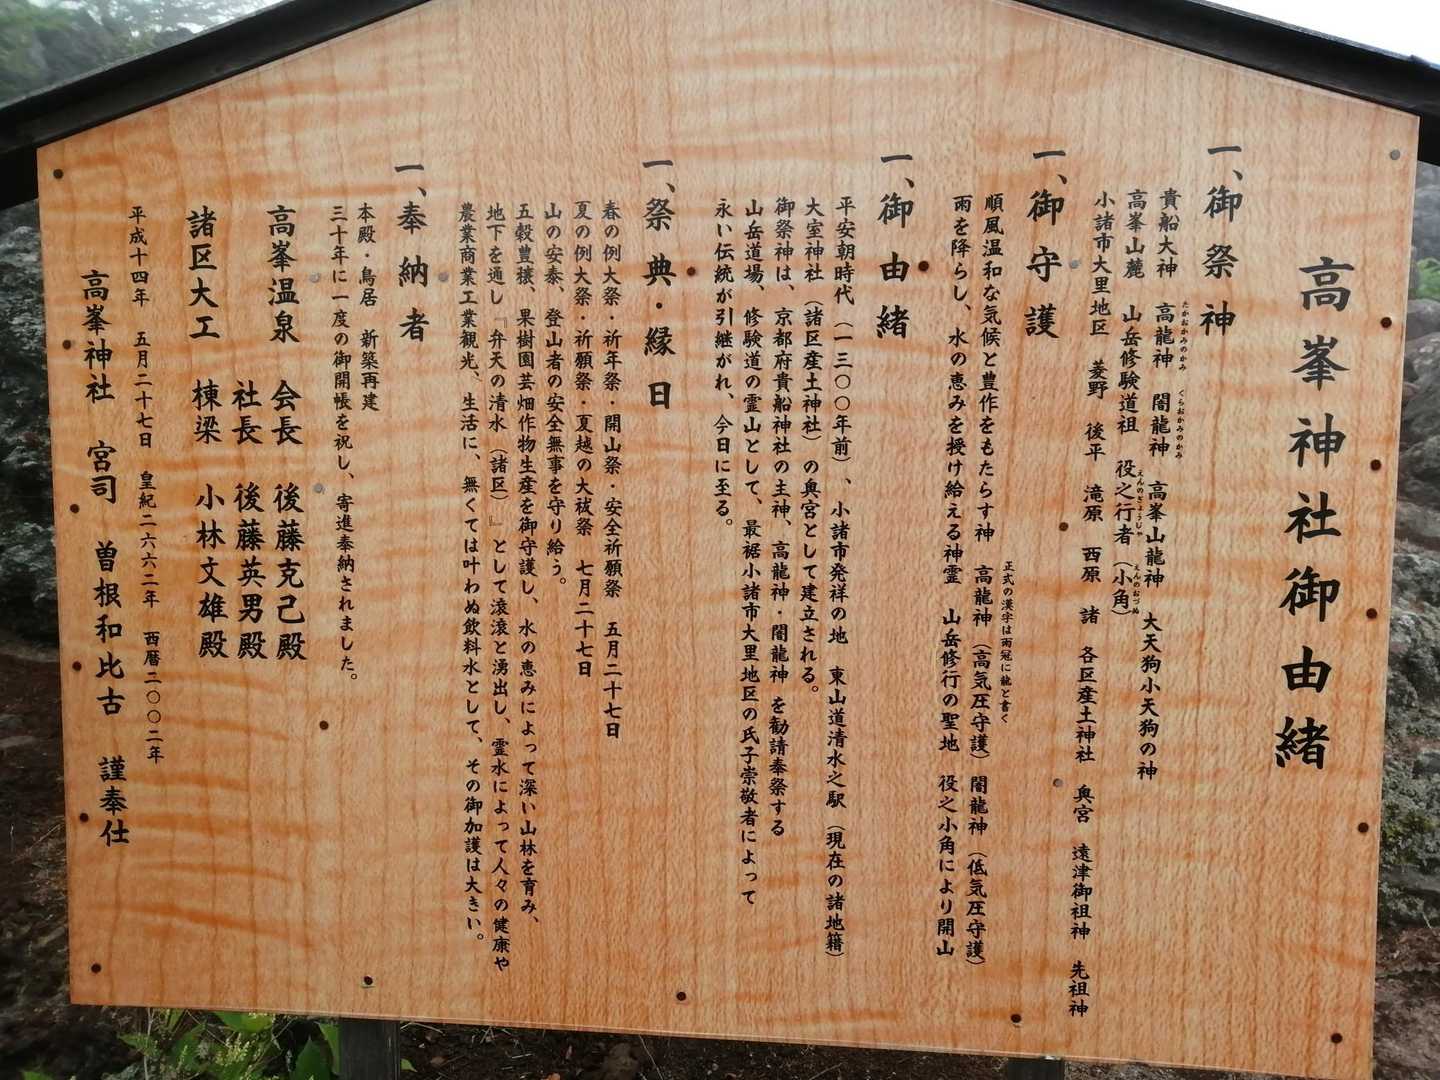 高峯神社御由緒
一、御祭神
貴船大神　高龍神　闇龍神　高峯山龍神　大天狗小天狗の神
たかおかみのかみ　くらおかみのかみ
高峯山麓　山岳修験道祖　役之行者（小角）
えんのぎょうじゃ　えんのおづぬ
小諸市大里地区　菱野　後平　滝原　西原　諸　各区産土神社　奥宮　遠津御祖神　先祖神
一、御守護
正式の漢字は雨冠に龍と書く
順風温和な気候と豊作をもたらす神　高龍神（高気圧守護）闇龍神（低気圧守護）
雨を降らし、水の恵みを授け給える神霊　山岳修行の聖地　役之小角により開山
一、御由緒
平安朝時代（一三〇〇年前）、小諸市発祥の地　東山道清水之駅（現在の諸地籍）
大室神社（諸区産土神社）の奥宮として建立される。
御祭神は、京都府貴船神社の主神、高龍神・闇龍神　を勧請奉祭する
山岳道場、修験道の霊山として、最裾小諸市大里地区の氏子崇敬者によって
永い伝統が引継がれ、今日に至る。
一、祭典・縁日
春の例大祭・祈年祭・開山祭・安全祈願祭　五月二十七日
夏の例大祭・祈願祭・夏越の大祓祭　七月二十七日
山の安泰、登山者の安全無事を守り給う。
五穀豊穣、果樹園芸畑作物生産を御守護し、水の恵みによって深い山林を育み、
地下を通し『弁天の清水（諸区）』として滾滾と湧出し、霊水によって人々の健康や
農業商業工業観光、生活に、無くては叶わぬ飲料水として、その御加護は大きい。
一、奉納者
本殿・鳥居　新築再建
三十年に一度の御開帳を祝し、寄進奉納されました。
高峯温泉　会長　後藤克己殿
社長　後藤英男殿
諸区大工　棟梁　小林文雄殿
平成十四年　五月二十七日　皇紀二六六二年　西暦二〇〇二年
高峯神社　宮司　曽根和比古　謹奉仕